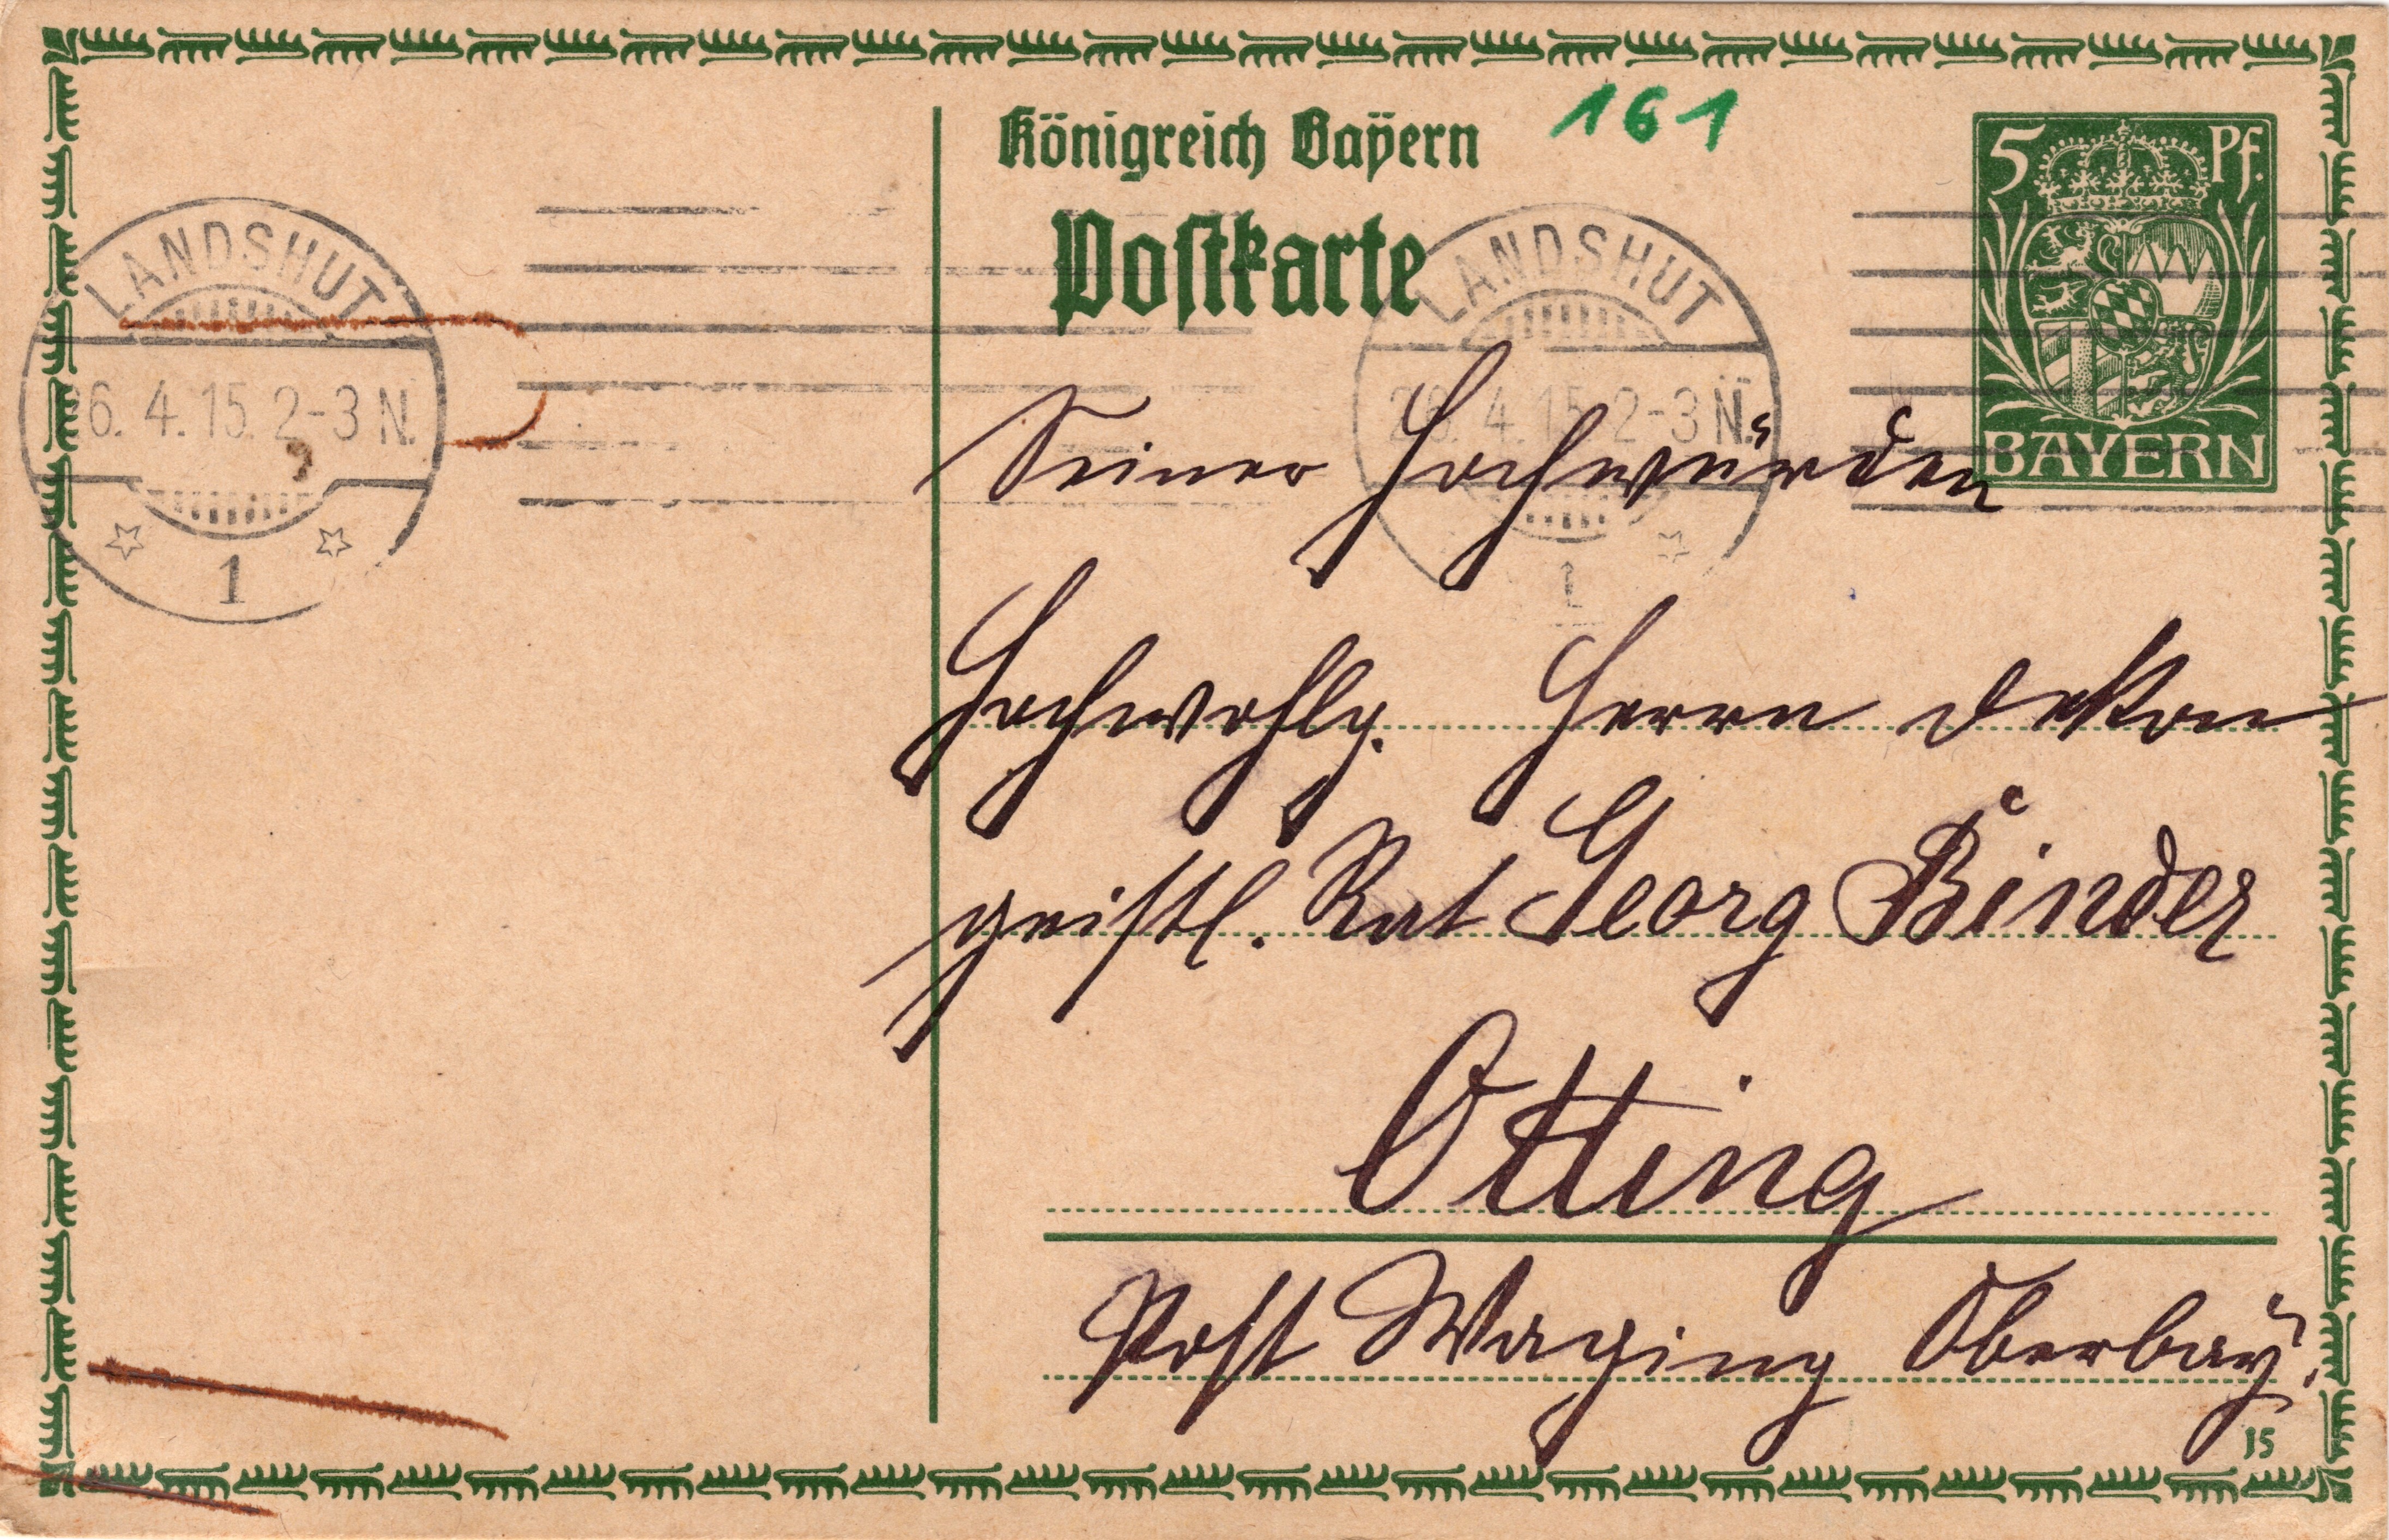 Königreich Bayern
161
5 Pf.
Postkarte
BAYERN
LANDSHUT
26. 4. 15. 2-3 N.
1
LANDSHUT
26. 4. 15. 2-3 N.
1
Seiner Hochwürden
Hochwohlg. Herrn Dekan
geistl. Rat Georg Binder
Otting
Post Waging Oberbay.
15